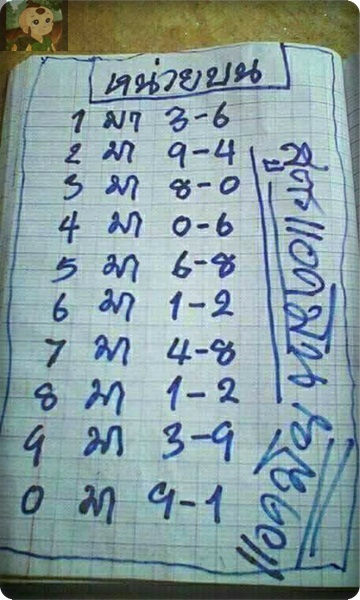 หน่วยบน
1 มา 3-6
2 มา 9-4
3 มา 8-0
4 มา 0-6
5 มา 6-8
6 มา 1-2
7 มา 4-8
8 มา 1-2
9 มา 3-9
0 มา 9-1
สูตรแอดมิน
แอดมิน